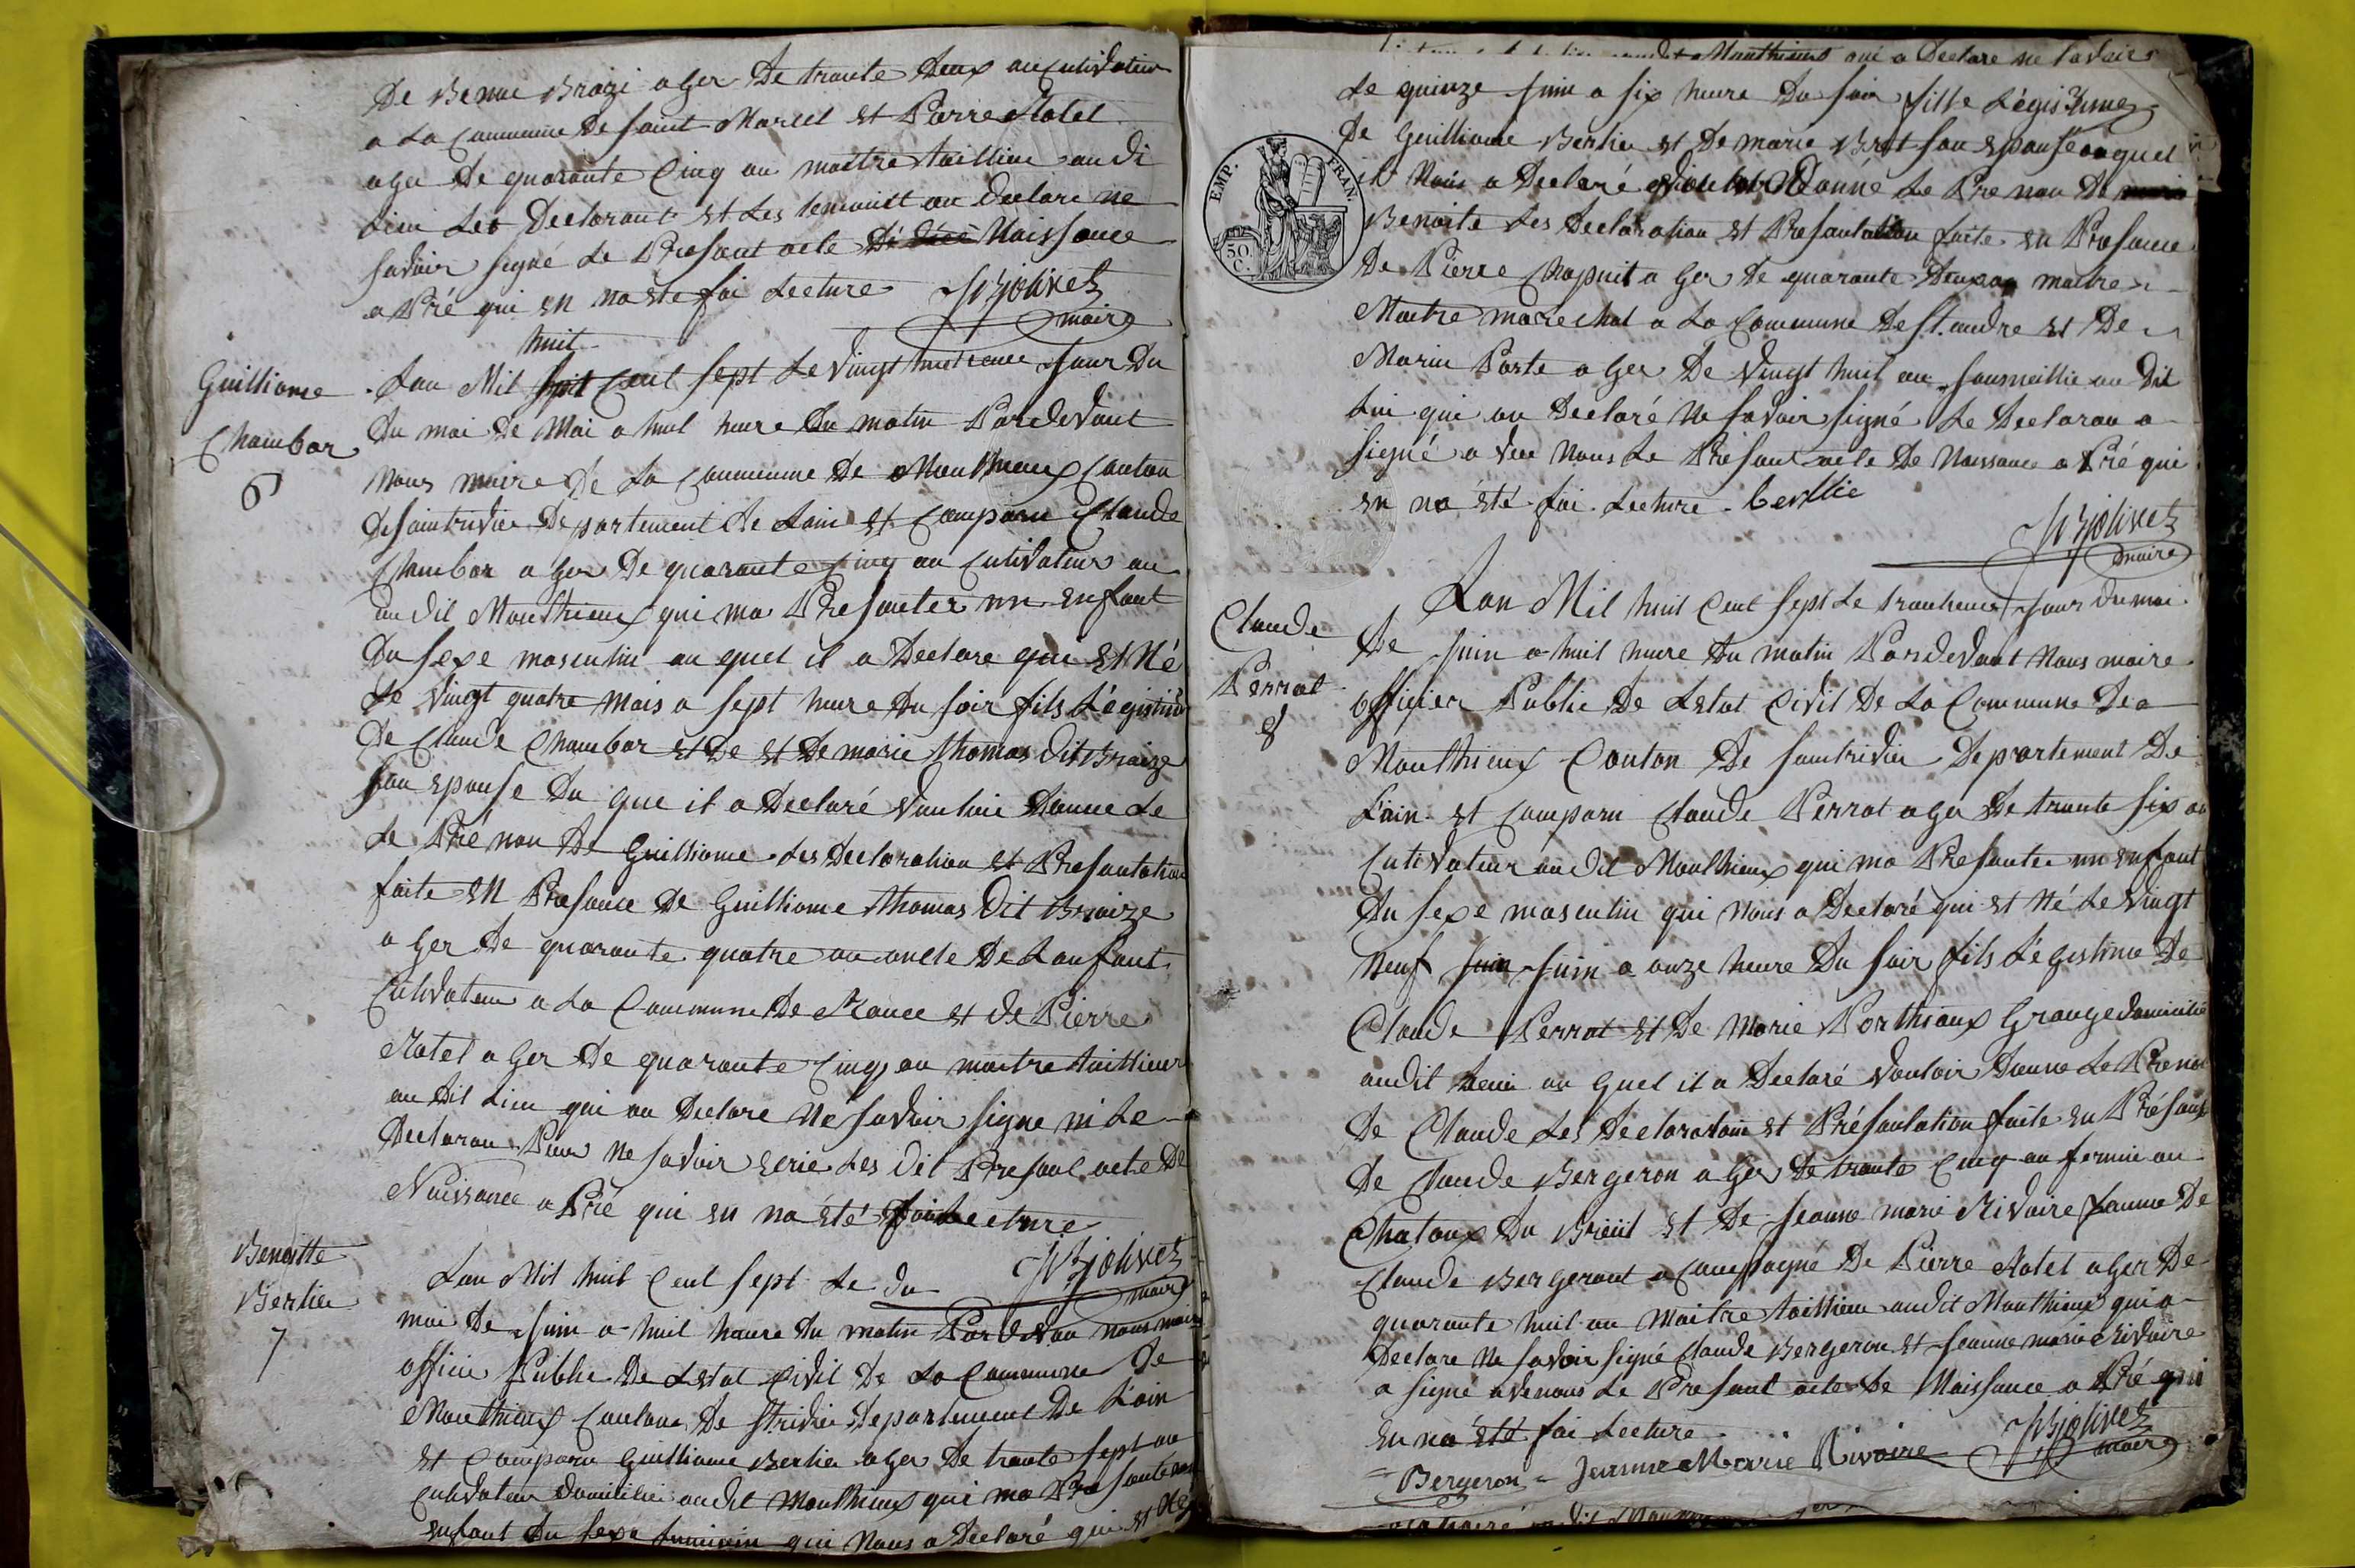 De Benoe Brazi a Ger De trante Deux an Cutivateur
a La Commune De saint Marcel Et Pierre Natel
a Ger De quarante Cinq an maitre taillieur au di
Lieu Les Declarant Et Les temouist on Declare ne
savoir signé Le Presant acte De Naissance
a Pré qui en na ste fai Lecture JBjolivet
maire
huit
Guilliome
Chambar
6
Lan Mil Cent sept Le vingt huitieme Jour Du
Du moi De Mai a huit heure Du matin Pardevant
Nous maire De La Commune De Monthieux Canton
De saintrivier Departement De Lain Et Comparu Claude
Chambar a Ger De quarante Cinq an Cutivateur au
au dit Monthieux qui ma Presanter un Enfant
Du sexe masculin au quel il a Declare qui Est Né
Le vingt quatre Mais a sept heure Du soir fils Légistime
De Claude Chambar Et De Et De marie thomas Dit Braize
sou Epouse Du que il a Declaré vouloire Donne Le
Le Pré non De Guilliome Les Declaration Et Presantation
faite EN Presance De Guilliome thomas Dit Braize
a Ger De quarante quatre an oncle De Lanfant
Cutivateur a La Commune De Rance Et De Pierre
Natel a Ger De quarante Cinq an maitre taillieur
au Dit Lieu qui on Declare Ne savoir signe ni Le
Declaran Pour Ne savoir Ecrie Les Dit Presant acte De
Naissance a Pré qui En na Eté fai Lecture
JBjolivet
maire
Benoitte
Berlie
7
Lan Mil huit Cent sept Le du
moi De Juin a huit heure Du matin Pardevan nous maire
officie Public De Letat Civil De La Commune De
Monthieux Canton De Strivier Departement De Lain
Et Comparu Guilliaume Berlie a Ger De trante sept an
Cutivateur Domicilie audit Monthieux qui ma Presante un
Enfant Du sexe feminin qui Nous a Declaré qui Est Né
Monthieux qui a Declare ne savoir
Le quinze Juin a six heure Du soir fille Légistime
De Guilliaume Berlie Et De marie Brot sou Epouse au quel
il Nous a Declaré vouloir Donné Le Pre non De
Benoite Les Declaration Et Presantation faite En Presance
De Pierre Chapuit a Ger De quarante Deux an maitre
Maitre marechal a La Commune De St. andre Et De
Marin Porte a Ger De Vingt huit an Journallie au Dit
Lui qui on Declaré Ne savoir signé Le Declaran a
signé a vec Nous Le Presant acte De Naissance a Pré qui
En na Eté fai Lecture. berllie
JBjolivet
maire
EMP. FRAN.
50 C.
Claude
Perrat
8
Lan Mil huit Cent sept Le trantieme Jour Du moi
De Juin a huit heure Du matin Pardevant Nous maire
officier Public De Letat Civil De La Commune De
Monthieux Conton De saintrivier Departement De
Lain Et Comparu Claude Perrat a Ger De trante six an
Cutivateur au Dit Monthieux qui ma Presante un Enfant
Du sexe masculin qui Nous a Declaré qui Est Né Le Vingt
Neuf Juin Juin a onze heure Du soir fils Légistime De
Claude Perrat Et De Marie Porthiaux Grange Domicilie
audit Leiu au Quel il a Declaré Vouloir Donne Le Preno
De Claude Les Declaratoin Et Présantation faite En Présanse
De Claude Bergeron a Ger De trante Cinq an fermie au
Chataux Du Breüit Et De Jeanne marie Rivoire famme De
Claude Bergeront a Compagné De Pierre Natel a Ger De
quarante huit an Maitre taillieur audit Monthieux qui a
Declare Ne savoir signé Claude Bergeron Et Jeanne marie Rivoire
a signé a ve nous Le Presant acte De Naissance a Pré qui
En na Eté fai Lecture JBjolivet
maire
Bergeron = Jeanne Marie Rivoire